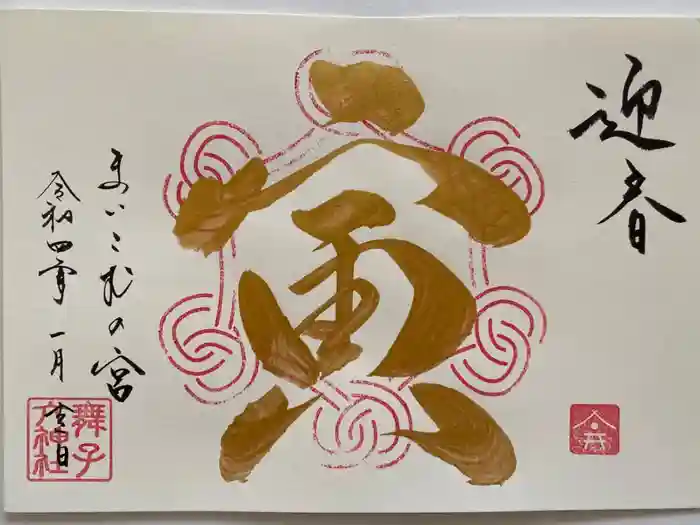 迎春
寅
まいこむの宮
令和四年一月
吉日
舞子
六神社